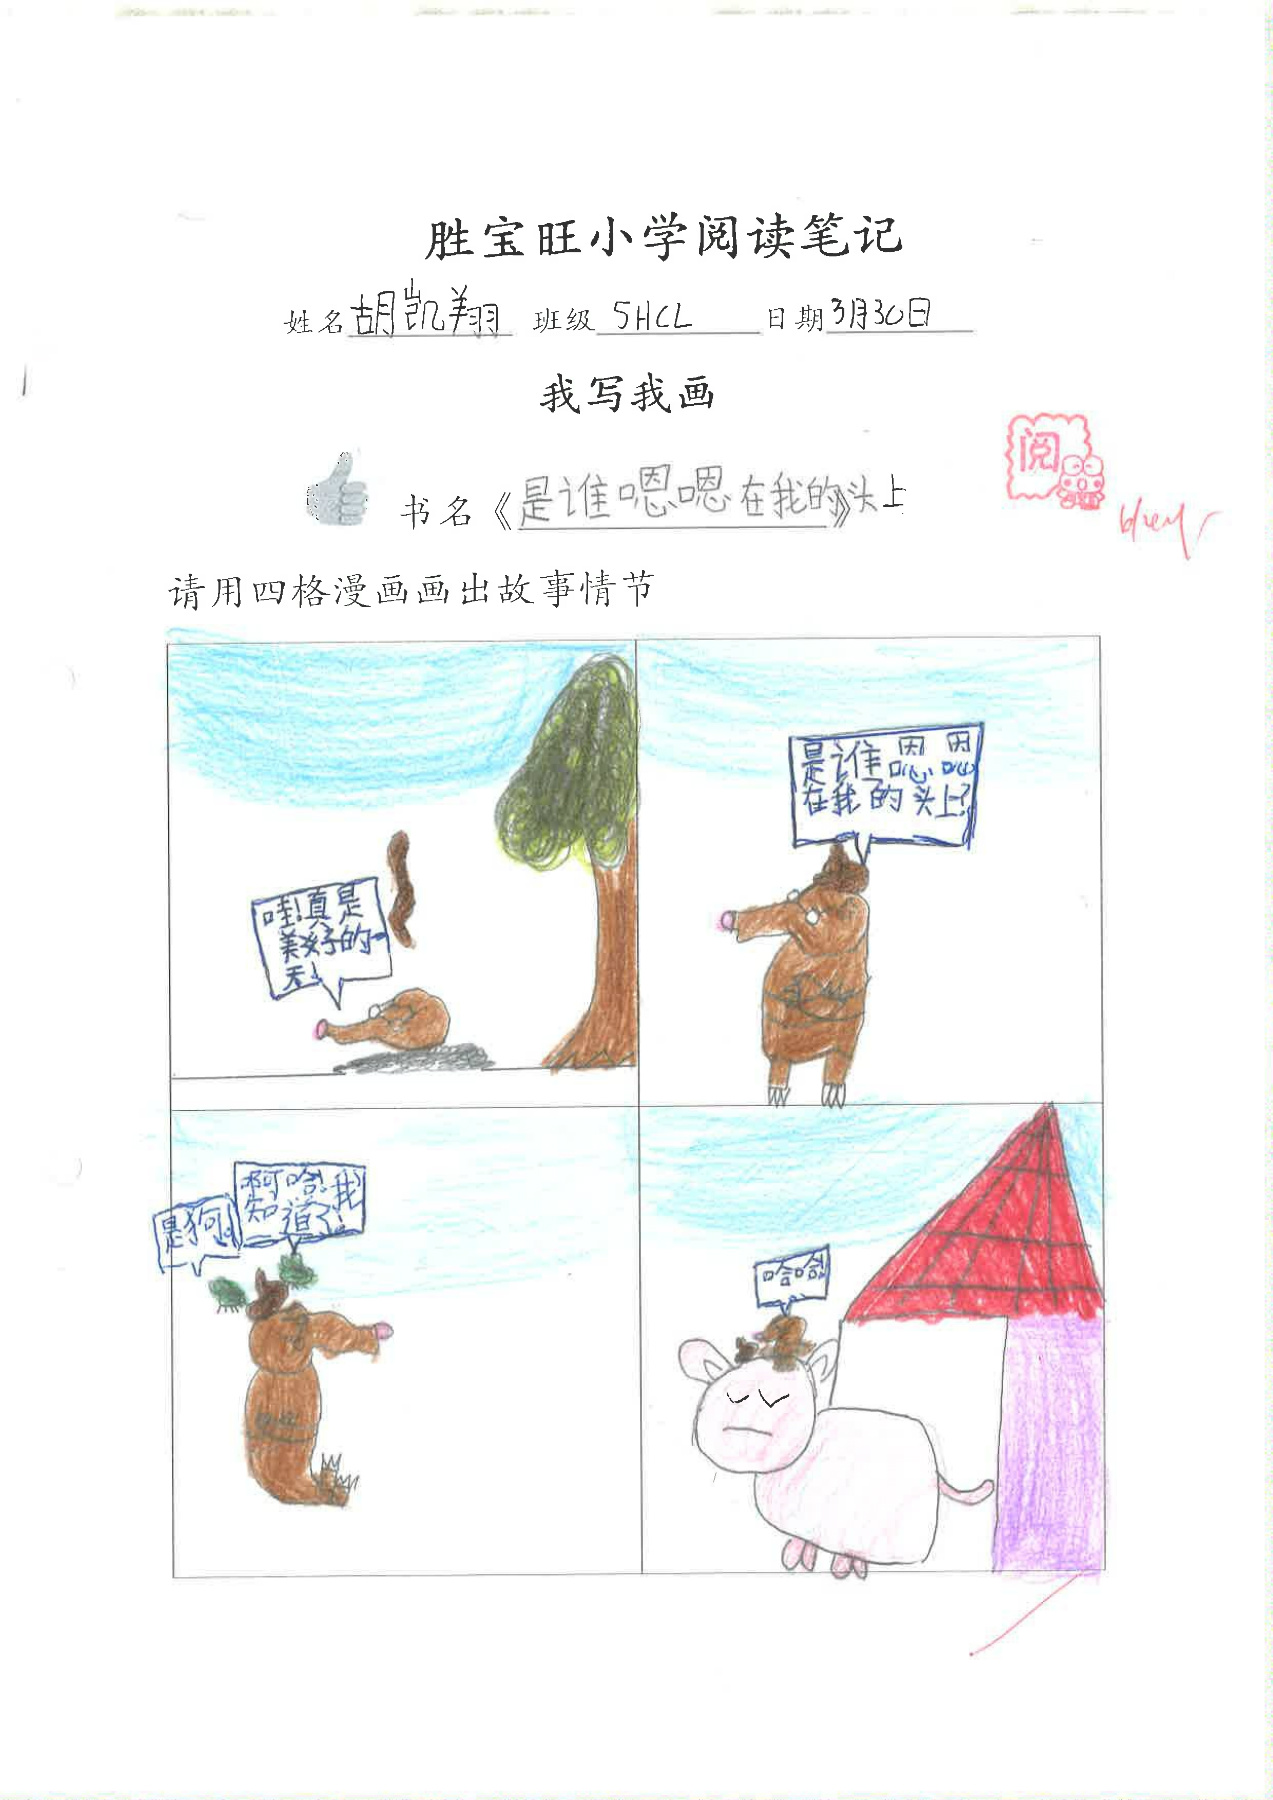 胜宝旺小学阅读笔记
姓名胡凯翔 班级 5HCL 日期3月30日
我写我画
阅
书名《是谁嗯嗯在我的》头上
请用四格漫画画出故事情节
哇!真是
美好的一
天!
是谁嗯嗯
在我的头上?
啊哈!我
知道了!
是狗!
哈哈!